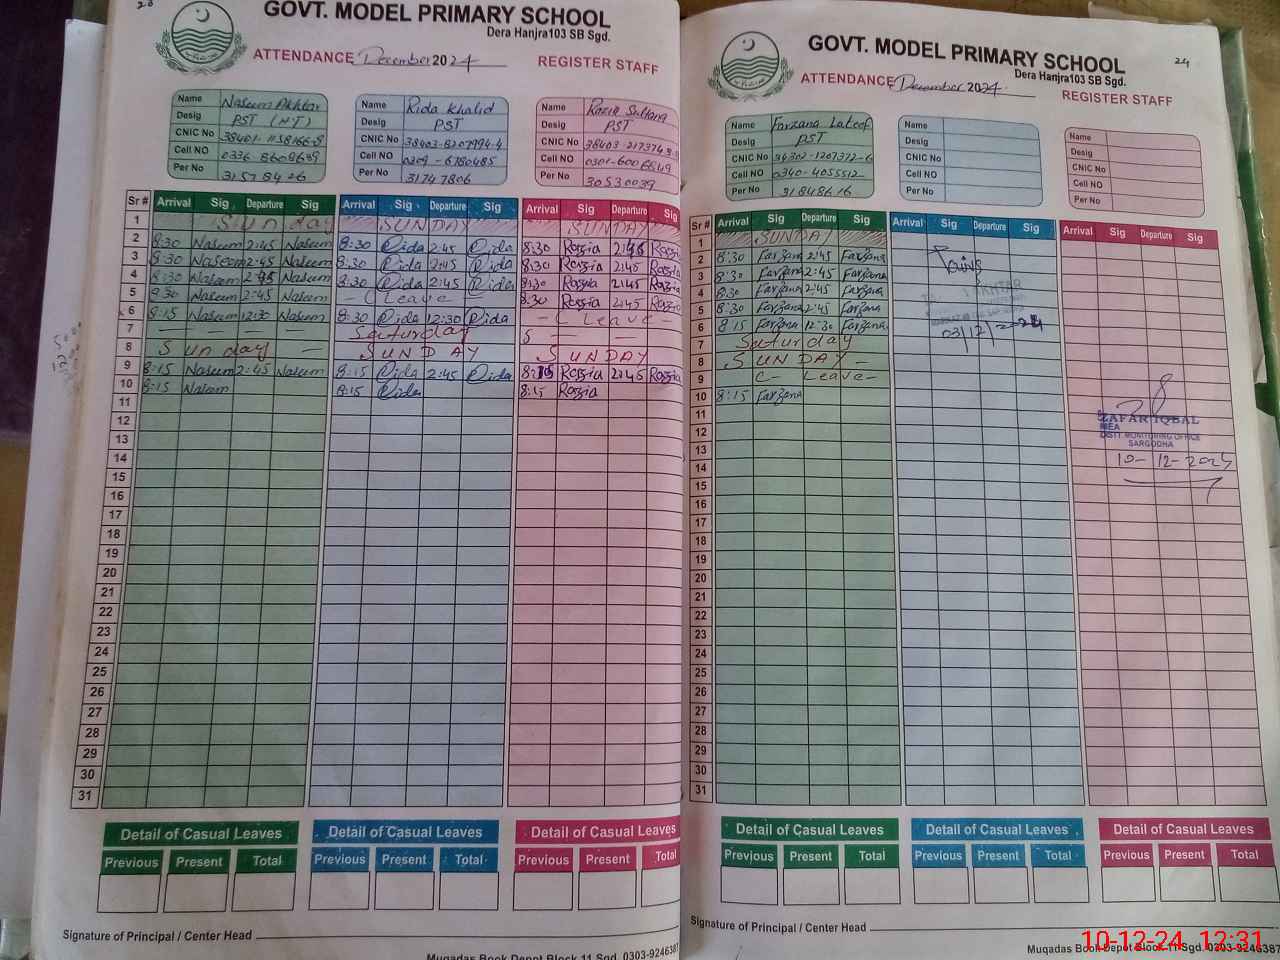 GOVT. MODEL PRIMARY SCHOOL
Dera Hanjra103 SB Sgd.
ATTENDANCE December 2024 REGISTER STAFF
Name Naseem Akhtar
Desig PST (H.T)
CNIC No
Cell NO 0336
Per No 31578426
Name Rida Khalid
Desig PST
CNIC No 38403-8207994-4
Cell NO 0309-6780485
Per No 31747806
Name Razia Sultana
Desig PST
CNIC No 38403-217374
Cell NO 0301-600
Per No 30530039
Sr # Arrival Sig Departure Sig Arrival Sig Departure Sig Arrival Sig Departure Sig
1 Sunday SUNDAY SUNDAY
2 8:30 Naseem 2:45 Naseem 8:30 Rida 2:45 Rida 8:30 Razia 2:45 Razia
3 8:30 Naseem 2:45 Naseem 8:30 Rida 2:45 Rida 8:30 Razia 2:45 Razia
4 8:30 Naseem 2:45 Naseem 8:30 Rida 2:45 Rida 8:30 Razia 2:45 Razia
5 8:30 Naseem 2:45 Naseem - C Leave - 8:30 Razia 2:45 Razia
6 8:15 Naseem 12:30 Naseem 8:30 Rida 12:30 Rida - C Leave -
7 — — — Saturday S — —
8 Sunday — SUNDAY SUNDAY
9 8:15 Naseem 2:45 Naseem 8:15 Rida 2:45 Rida 8:15 Razia 2:45 Razia
10 8:15 Naseem 8:15 Rida 8:15 Razia
11
12
13
14
15
16
17
18
19
20
21
22
23
24
25
26
27
28
29
30
31
Detail of Casual Leaves Detail of Casual Leaves Detail of Casual Leaves
Previous Present Total Previous Present Total Previous Present Total
Signature of Principal / Center Head
Muqadas Book Depot Block 11 Sgd. 0303-9246387
24
GOVT. MODEL PRIMARY SCHOOL
Dera Hanjra103 SB Sgd.
ATTENDANCE December 2024 REGISTER STAFF
Name Farzana Lateef
Desig PST
CNIC No 34302-1207372-6
Cell NO 0340-4055512
Per No 31848616
Name
Desig
CNIC No
Cell NO
Per No
Name
Desig
CNIC No
Cell NO
Per No
Sr # Arrival Sig Departure Sig Arrival Sig Departure Sig Arrival Sig Departure Sig
1 SUNDAY
2 8:30 Farzana 2:45 Farzana
3 8:30 Farzana 2:45 Farzana
4 8:30 Farzana 2:45 Farzana
5 8:30 Farzana 2:45 Farzana
6 8:15 Farzana 12:30 Farzana
03/12/2024
7 Saturday
8 SUNDAY -
9 C- Leave-
10 8:15 Farzana
ZAFAR IQBAL
MEA
DISTT. MONITORING OFFICE
SARGODHA
10-12-2024
11
12
13
14
15
16
17
18
19
20
21
22
23
24
25
26
27
28
29
30
31
Detail of Casual Leaves Detail of Casual Leaves Detail of Casual Leaves
Previous Present Total Previous Present Total Previous Present Total
Signature of Principal / Center Head
Muqadas Book Depot Block 11 Sgd. 0303-9246387
10-12-24 12:31